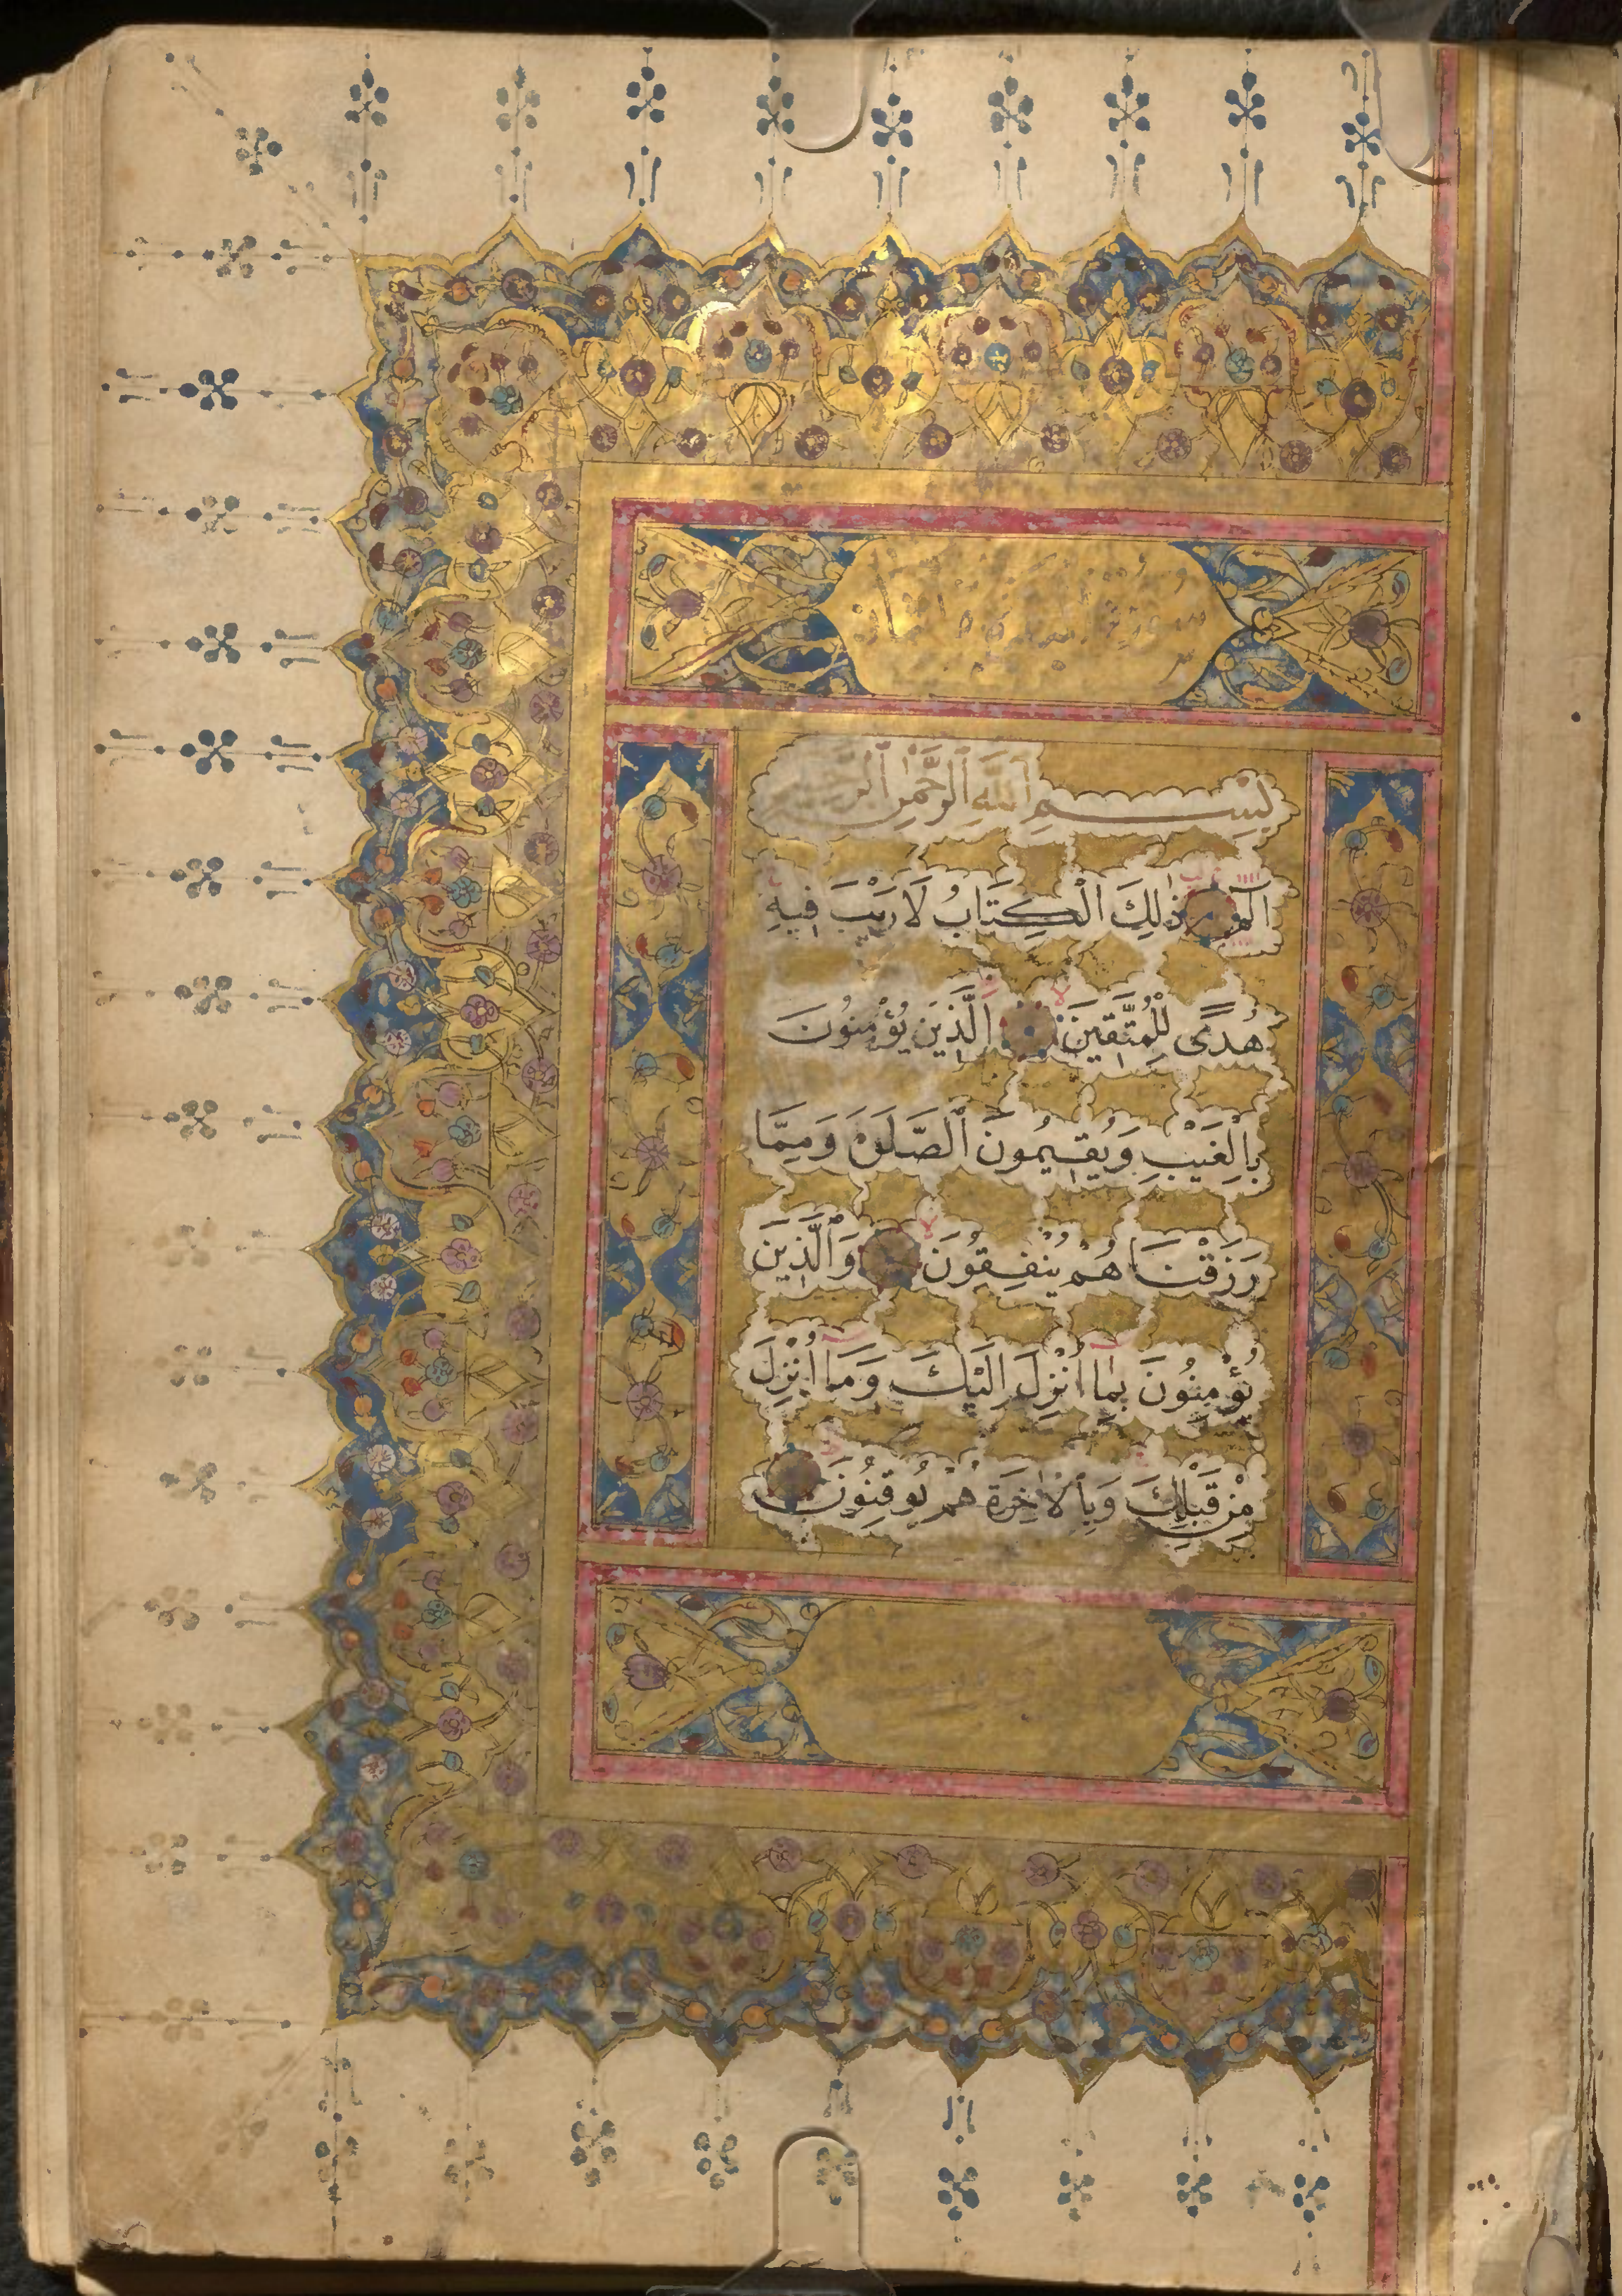 بِسْمِ ٱللَّهِ ٱلرَّحْمٰنِ ٱلرَّحِيمِ
الٓمٓ ذٰلِكَ الْكِتَابُ لَا رَيْبَ فِيهِ
هُدًى لِلْمُتَّقِينَ اَلَّذِينَ يُؤْمِنُونَ
بِالْغَيْبِ وَيُقِيمُونَ ٱلصَّلَوٰةَ وَمِمَّا
رَزَقْنَاهُمْ يُنْفِقُونَ وَٱلَّذِينَ
يُؤْمِنُونَ بِمَا اُنْزِلَ اِلَيْكَ وَمَا اُنْزِلَ
مِنْ قَبْلِكَ وَبِٱلْاٰخِرَةِ هُمْ يُوقِنُونَ